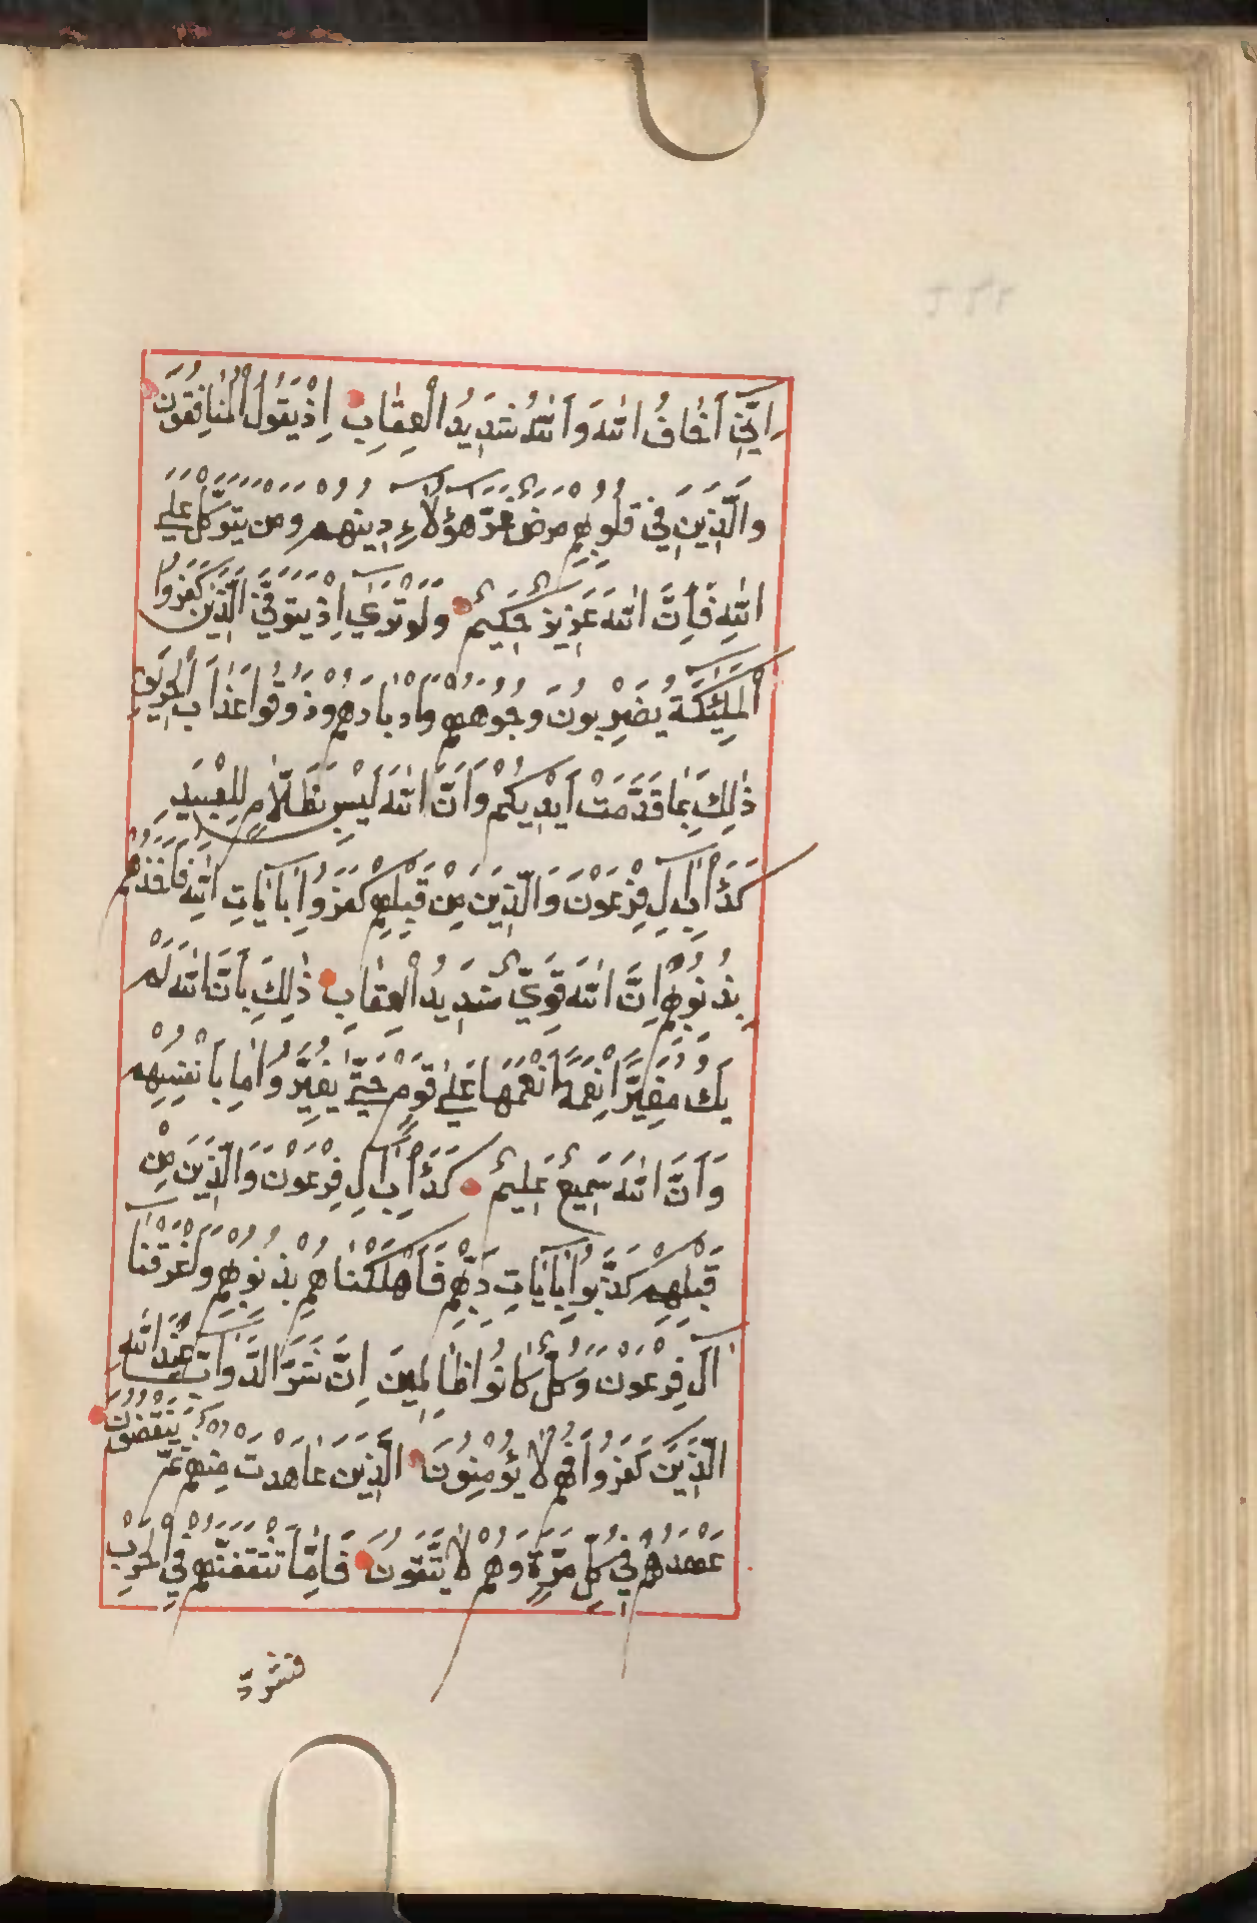 اِنِّي اَخَافُ اللّٰهَ وَاَللّٰهُ شَدِيدُ الْعِقَابِ اِذْ يَقُولُ الْمُنَافِقُونَ
وَالَّذِينَ فِي قُلُوبِهِمْ مَرَضٌ غَرَّ هٰؤُلَاءِ دِينُهُمْ وَمَنْ يَتَوَكَّلْ عَلَى
اللّٰهِ فَاِنَّ اللّٰهَ عَزِيزٌ حَكِيمٌ وَلَوْ تَرٰي اِذْ يَتَوَفَّي الَّذِينَ كَفَرُوا
الْمَلٰئِكَةُ يَضْرِبُونَ وُجُوهَهُمْ وَاَدْبَارَهُمْ وَذُوقُوا عَذَابَ الْحَرِيقِ
ذٰلِكَ بِمَا قَدَّمَتْ اَيْدِيكُمْ وَاَنَّ اللّٰهَ لَيْسَ بِظَلَّامٍ لِلْعَبِيدِ
كَدَأْبِ اٰلِ فِرْعَوْنَ وَالَّذِينَ مِنْ قَبْلِهِمْ كَفَرُوا بِاٰيَاتِ اللّٰهِ فَاَخَذَهُمُ
بِذُنُوبِهِمْ اِنَّ اللّٰهَ قَوِيٌّ شَدِيدُ الْعِقَابِ ذٰلِكَ بِاَنَّ اللّٰهَ لَمْ
يَكُ مُغَيِّرًا نِعْمَةً اَنْعَمَهَا عَلٰى قَوْمٍ حَتّٰى يُغَيِّرُوا مَا بِاَنْفُسِهِمْ
وَاَنَّ اللّٰهَ سَمِيعٌ عَلِيمٌ كَدَأْبِ اٰلِ فِرْعَوْنَ وَالَّذِينَ مِنْ
قَبْلِهِمْ كَذَّبُوا بِاٰيَاتِ رَبِّهِمْ فَاَهْلَكْنَاهُمْ بِذُنُوبِهِمْ وَاَغْرَقْنَا
اٰلَ فِرْعَوْنَ وَكُلٌّ كَانُوا ظَالِمِينَ اِنَّ شَرَّ الدَّوَابِّ عِنْدَ اللّٰهِ
الَّذِينَ كَفَرُوا فَهُمْ لَا يُؤْمِنُونَ الَّذِينَ عَاهَدْتَ مِنْهُمْ ثُمَّ يَنْقُضُونَ
عَهْدَهُمْ فِي كُلِّ مَرَّةٍ وَهُمْ لَا يَتَّقُونَ فَاِمَّا تَثْقَفَنَّهُمْ فِي الْحَرْبِ
فَشَرِّدْ